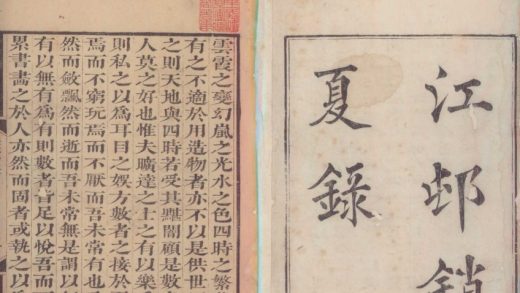 江邨銷
夏錄
雲霞之變幻嵐之光水之色四時之繁
有之不適於用造物者亦不以是供世
之則天地與四時若受其闘顧是數
人莫之好也惟夫曠達之士之有以樂
則私之以為耳目之娛方數者之接於
焉而不窮玩焉而不厭而吾未常有也
然而斂飄然而逝而吾未常無是謂以
有以無有為有則數者皆足以悅吾而
累書畫之於人亦然而固者或執之以